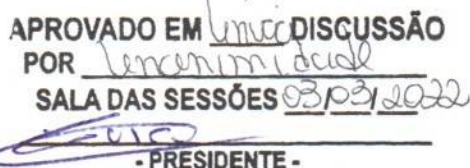 APROVADO EM única DISCUSSÃO
POR unanimidade
SALA DAS SESSÕES 03/03/2022
- PRESIDENTE -